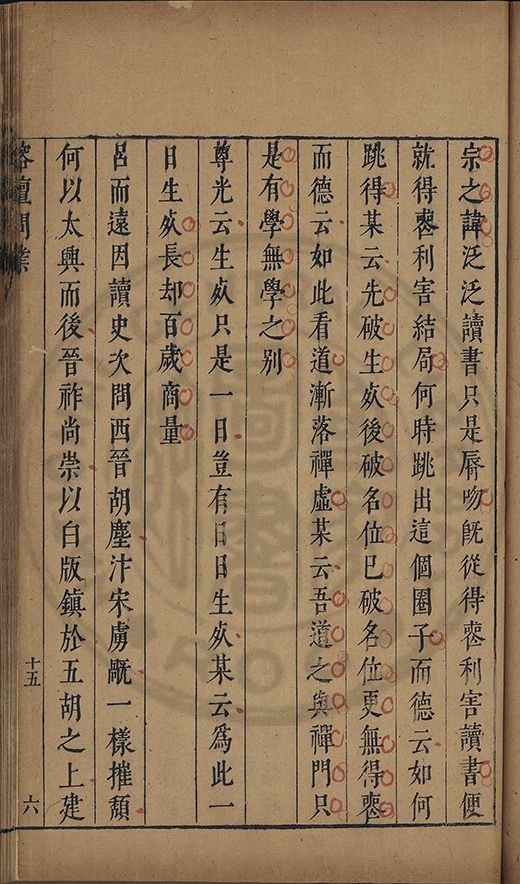 宗之諱泛泛讀書只是脣吻旣從得喪利害讀書便
就得喪利害結局何時跳出這個圈子而德云如何
跳得某云先破生㱙後破名位已破名位更無得喪
而德云如此看道漸落禪虛某云吾道之與禪門只
是有學無學之别
尊光云生㱙只是一日豈有日日生㱙某云爲此一
日生㱙長却百歲商量
呂而遠因讀史次問西晉胡塵汴宋虜䶣一樣摧頽
何以太興而後晉祚尚崇以白版鎮於五胡之上建
榕壇問業
十五
六